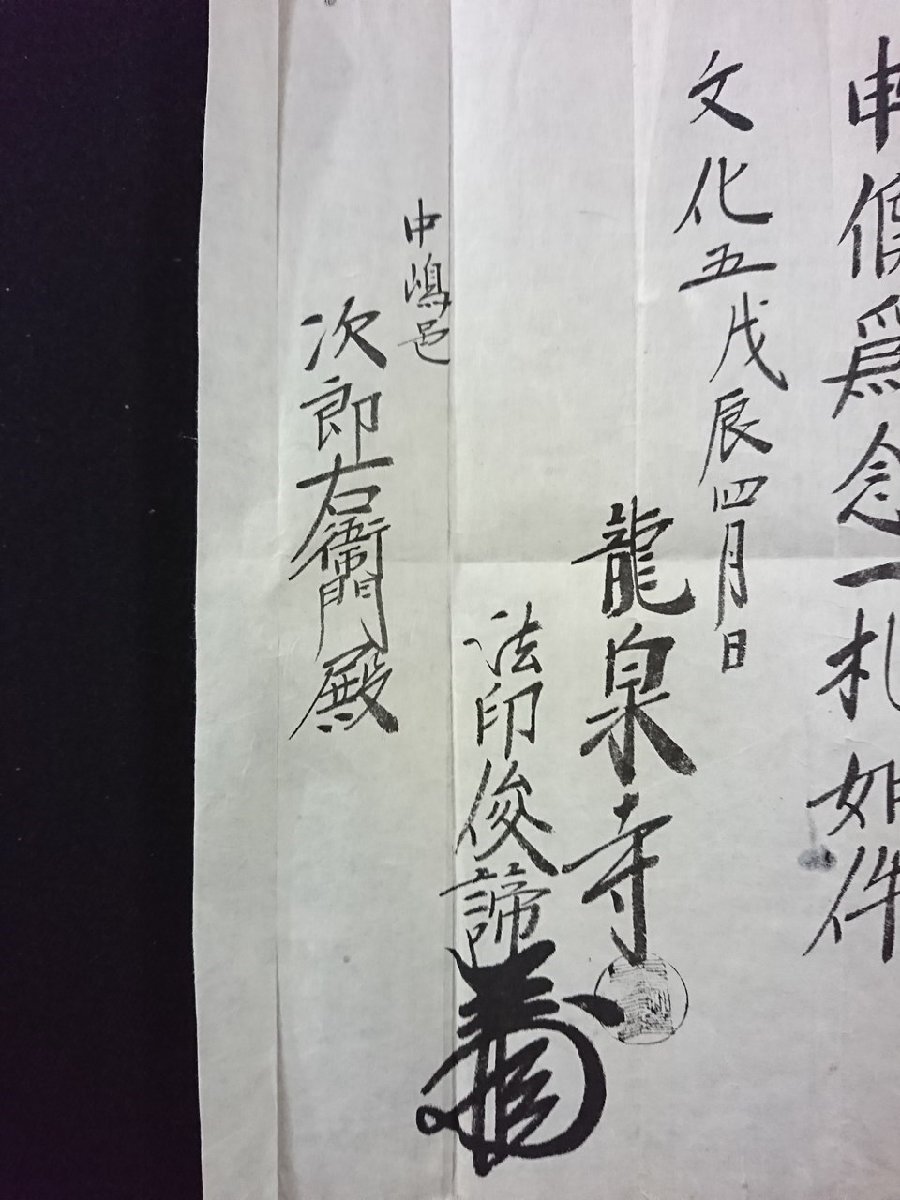 申候為念一札如件
文化五戊辰四月日
龍泉寺
法印俊諦
中嶋邑
次郎右衛門殿